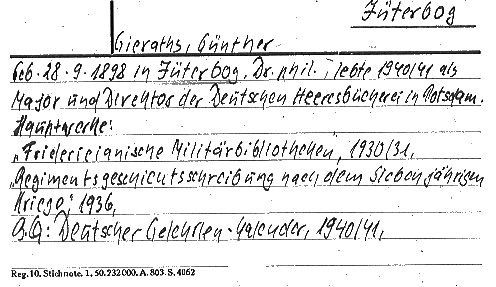 Jüterbog
Gieraths, Günther
Geb. 28. 9. 1898 in Jüterbog, Dr. phil., lebte 1940/41 als
Major und Direktor der Deutschen Heeresbücherei in Potsdam.
Hauptwerke:
„Friedericianische Militärbibliotheken, 1930/31,
„Regimentsgeschichtsschreibung nach dem Siebenjährigen
Kriege" 1936,
B.Q: Deutscher Gelehrten-Kalender, 1940/41,
Reg. 10. Stichnote. 1, 50. 232000. A. 803. S. 4062